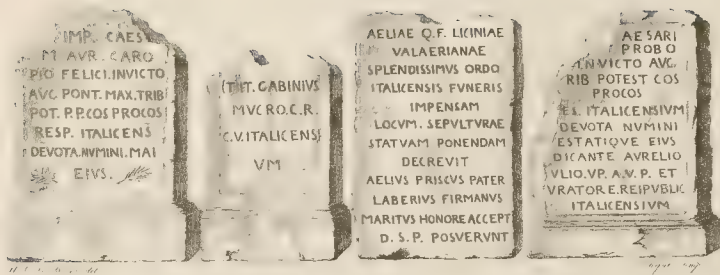 IMP. CAES
M AVR. CARO
PIO FELICI.INVICTO
AVG PONT. MAX.TRIB
POT. P.P.COS PROCOS
RESP. ITALICENS
DEVOTA.NVMINI.MAI
EIVS.
TIT. GABINIVS
MVCRO.C.R.
C.V.ITALICENSI
VM
AELIAE Q.F. LICINIAE
VALAERIANAE
SPLENDISSIMVS ORDO
ITALICENSIS FVNERIS
IMPENSAM
LOCVM. SEPVLTVRAE
STATVAM PONENDAM
DECREVIT
AELIVS PRISCVS PATER
LABERIVS FIRMANVS
MARITVS HONORE ACCEPT
D. S. P. POSVERVNT
AESARI
PROBO
INVICTO AVG.
RIB POTEST COS
PROCOS
ES. ITALICENSIVM
DEVOTA NVMINI
ESTATIQVE EIVS
DICANTE AVRELIO
VLIO.VP. A.V.P. ET
VRATORE.REIPVBLIC
ITALICENSIVM